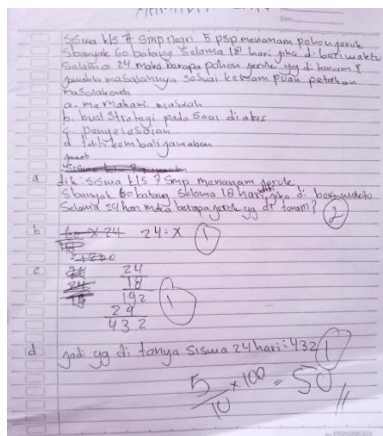 Siswa kls 7 Smp negri 5 psp menanam pohon jeruk
Sbanyak 60 batang Selama 18 hari jika di beri waktu
Selama 24 maka berapa pohon jeruk yg di tanam?
masalahnya Sesuai
masalah
a. memahami masalah
b. buat Strategi pada Soal di atas
c. penyelesaian
d. kembali jawaban
jawab
a dik: Siswa kls 7 Smp menanam jeruk
Sbanyak 60 batang Selama 18 hari, jika di beri waktu
Selama 24 hari maka berapa jeruk yg di tanam? 2
b 60 x 24 24 : x 1
c 24 24
18 18
192
24
432
1
d jadi yg di tanya siswa 24 hari : 432 1
5/10 x 100 = 50 //